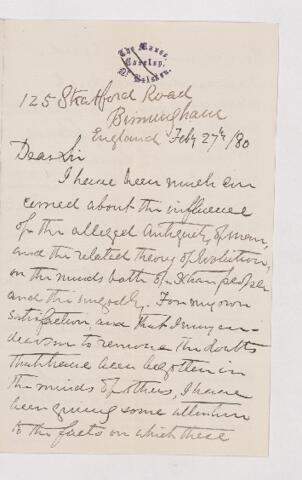 The Manse
Roseley,
125 Stratford Road
Birmingham
England Feby 27th/80
Dear Sir
I have been much con
cerned about the influence
of the alleged Antiquity of man,
and the related theory of Evolution,
on the minds both of Xtian people
and the ungodly. For my own
satisfaction, and that I may en-
deavour to remove the doubts
that have been begotten in
the minds of others, I have
been giving some attention
to the facts on which these